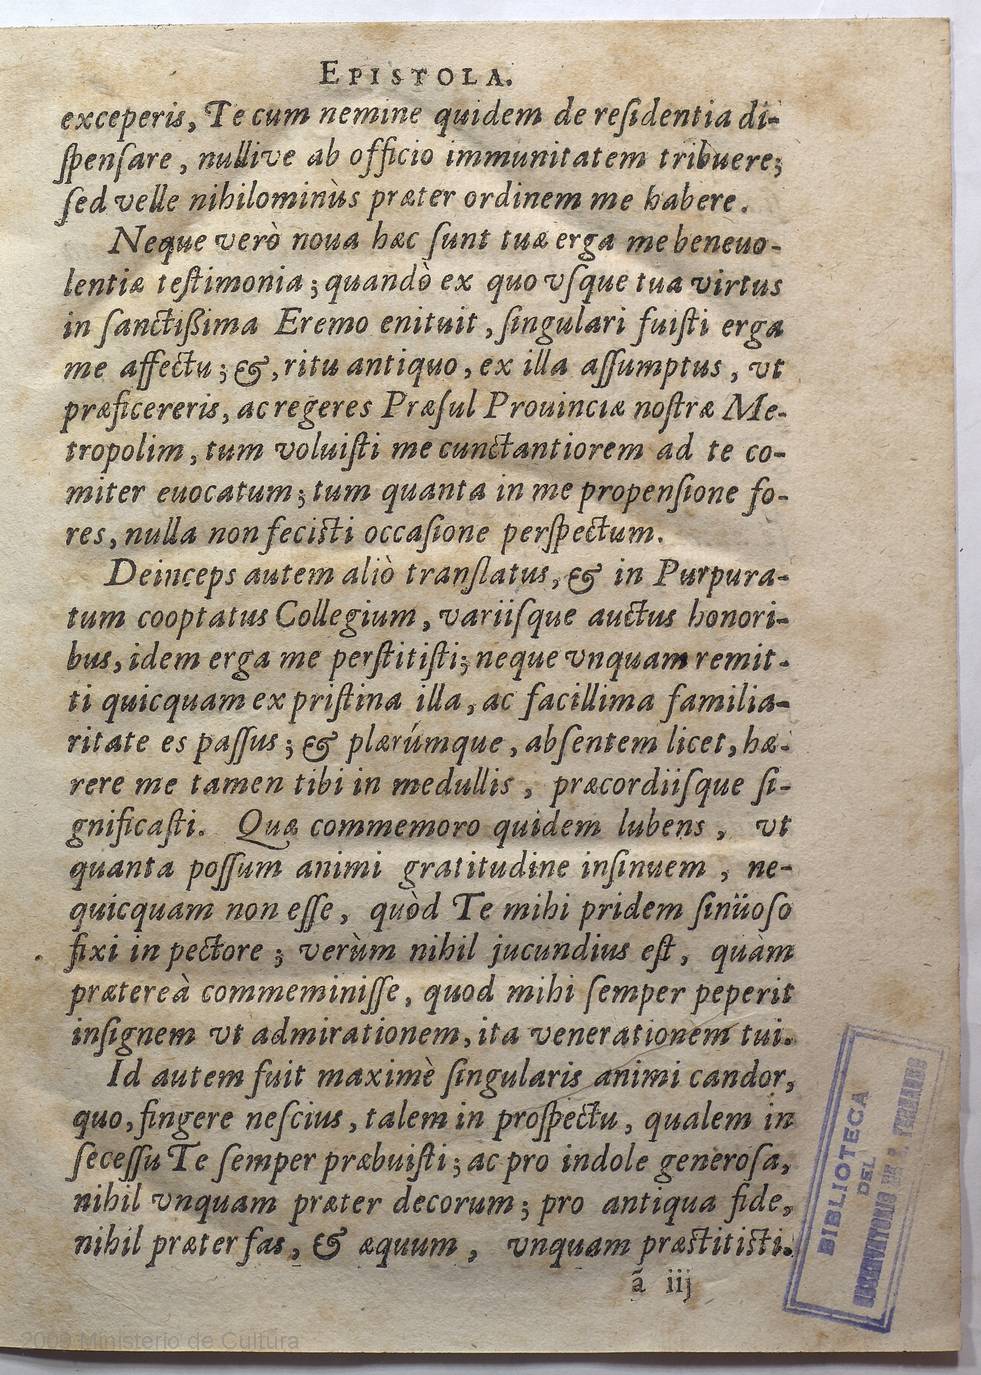 EPISTOLA.
exceperis, Te cum nemine quidem de reſidentia di-
ſpenſare, nullive ab officio immunitatem tribuere;
ſed velle nihilominùs præter ordinem me habere.
Neque verò noua hæc ſunt tuæ erga me beneuo-
lentiæ teſtimonia; quandò ex quo vſque tua virtus
in ſanctißima Eremo enituit, ſingulari fuiſti erga
me affectu; &, ritu antiquo, ex illa aſſumptus, vt
præficereris, ac regeres Præſul Prouinciæ noſtræ Me-
tropolim, tum voluiſti me cunctantiorem ad te co-
miter euocatum; tum quanta in me propenſione fo-
res, nulla non feciſti occaſione perſpectum.
Deinceps autem aliò tranſlatus, & in Purpura-
tum cooptatus Collegium, variiſque auctus honori-
bus, idem erga me perſtitiſti; neque vnquam remit-
ti quicquam ex priſtina illa, ac facillima familia-
ritate es paſſus; & plærúmque, abſentem licet, hæ-
rere me tamen tibi in medullis, præcordiiſque ſi-
gnificaſti. Quæ commemoro quidem lubens, vt
quanta poſſum animi gratitudine inſinuem, ne-
quicquam non eſſe, quòd Te mihi pridem ſinüoſo
fixi in pectore; verùm nihil jucundius eſt, quàm
prætereà commeminiſſe, quod mihi ſemper peperit
inſignem vt admirationem, ita venerationem tui.
Id autem fuit maximè ſingularis animi candor,
quo, fingere neſcius, talem in proſpectu, qualem in
ſeceſſu Te ſemper præbuiſti; ac pro indole generoſa,
nihil vnquam præter decorum; pro antiqua fide,
nihil præter fas, & æquum, vnquam præſtitiſti.
ã iij
BIBLIOTECA
DEL
2009 Ministerio de Cultura